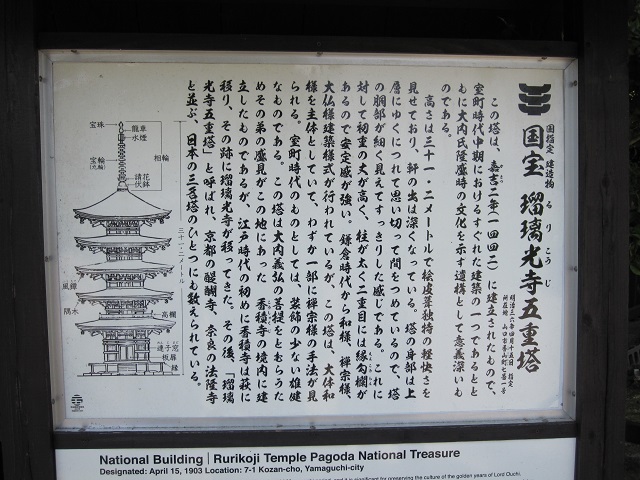 国指定 建造物
国宝 瑠璃光寺五重塔
る り こう じ
明治三六年四月十五日 指定
所在地 山口市香山町七番一号
この塔は、嘉吉二年(一四四二)に建立されたもので、
室町時代中期におけるすぐれた建築の一つであるとと
もに大内氏隆盛時の文化を示す遺構として意義深いも
のである。
高さは三十一・二メートルで桧皮葺独特の軽快さを
見せており、軒の出は深くなっている。塔の身部は上
層にゆくにつれて思い切って間をつめているので、塔
の胴部が細く見えてすっきりした感じである。これに
対して初重の丈が高く、柱が太く二重目には縁勾欄が
あるので安定感が強い。鎌倉時代から和様、禅宗様、
大仏様建築様式が行われているが、この塔は、大体和
様を主体としていて、わずか一部に禅宗様の手法が見
られる。室町時代のものとしては、装飾の少ない雄健
なものである。この塔は大内義弘の菩提をとむらうた
めその弟の盛見がこの地にあった 香積寺の境内に建
立したものであるが、江戸時代の初めに香積寺は萩に
移り、その跡に瑠璃光寺が移ってきた。その後、「瑠璃
光寺五重塔」と呼ばれ、京都の醍醐寺、奈良の法隆寺
と並ぶ、日本の三名塔のひとつにも数えられている。
宝珠
龍車
水煙
相輪
宝輪
(九輪)
請花
伏鉢
三十一・二メートル
風鐸
隅木
高欄
連子窓
板扉
縁
National Building | Rurikoji Temple Pagoda National Treasure
Designated: April 15, 1903 Location: 7-1 Kozan-cho, Yamaguchi-city
and it is significant for preserving the culture of the golden years of Lord Ouchi.